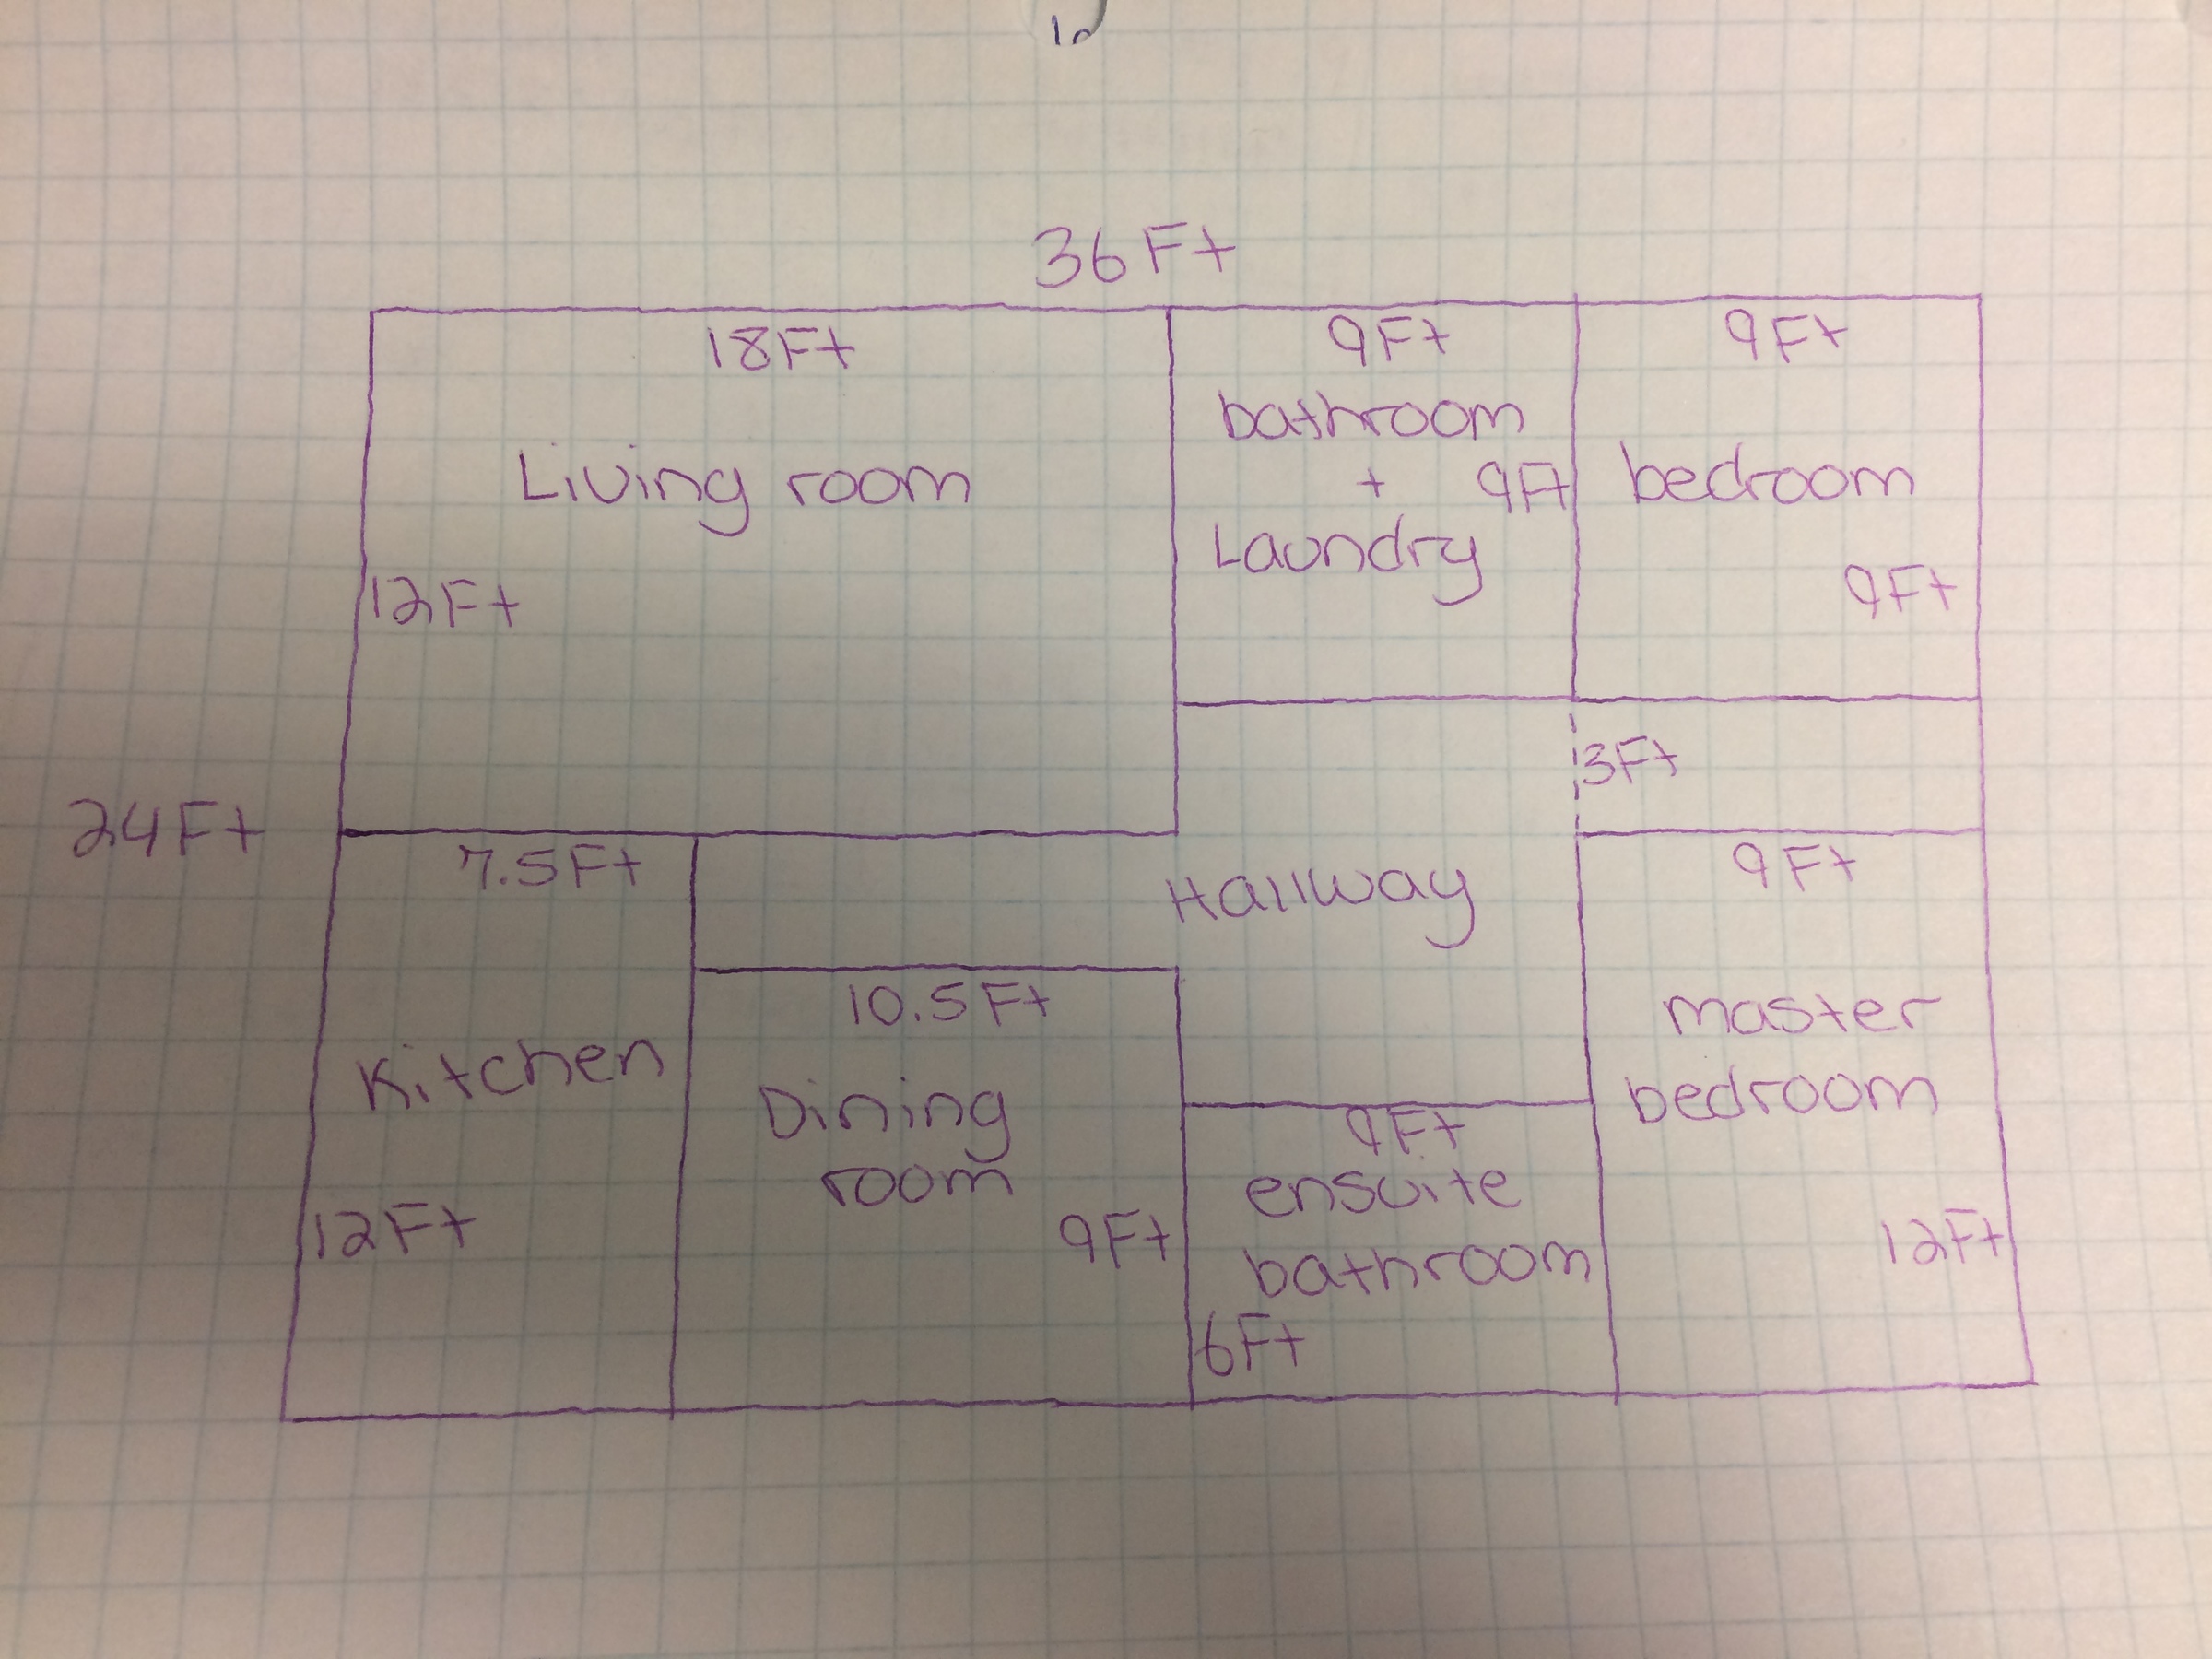 36Ft
18Ft
9Ft
9Ft
bathroom
+
Laundry
9Ft
Living room
bedroom
12Ft
9Ft
3Ft
24Ft
7.5Ft
9Ft
Hallway
10.5Ft
master
bedroom
Kitchen
Dining
room
9Ft
ensuite
bathroom
12Ft
9Ft
12Ft
6Ft